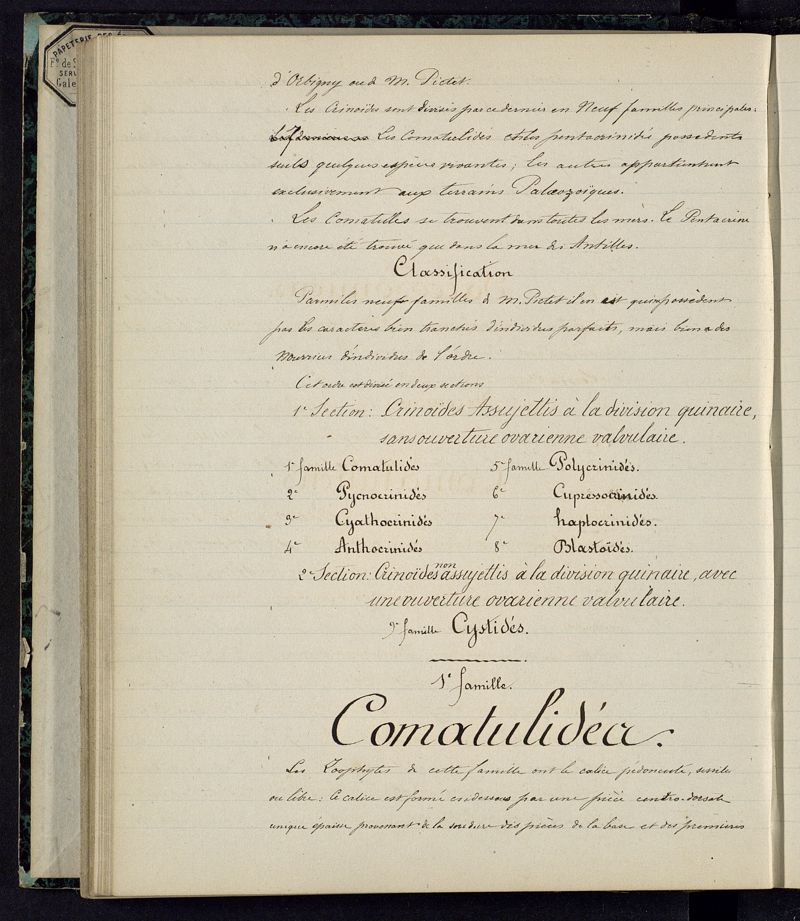 PAPETERIE DES
d'Orbigny ou de M. Pictet.
Les Crinoïdes sont divisés par ce dernier en Neuf familles principales.
Les Comatulidés et les pentacrinidés possèdent
seuls quelques espèces vivantes; les autres appartiennent
exclusivement aux terrains Palæozoïques.
Les Comatulles se trouvent dans toutes les mers. Le Pentacrine
n'a encore été trouvé que dans la mer des Antilles.
Classification
Parmi les neuf familles de M. Pictet il en est qui n possèdent
pas les caractères bien tranchés d'individus parfaits, mais bien a des
d'individus de l'ordre.
Cet ordre est divisé en deux sections
1e Section: Crinoïdes Assujettis à la division quinaire,
sans ouverture ovarienne valvulaire.
1e famille Comatulidés 5e famille Polycrinidés.
2e Pycnocrinidés 6e Cupressocrinidés.
3e Cyathocrinidés 7e haplocrinidés.
4e Anthocrinidés 8e Blastoïdés.
2e Section: Crinoïdes non assujettis à la division quinaire, avec
une ouverture ovarienne valvulaire.
9e famille Cystidés.
1e famille.
Comatulidéa.
Les Zoophytes de cette famille ont le calice pédonculé, sessile
ou libre: Ce calice est formé en dessous par une pièce centro-dorsale
unique épaisse provenant de la soudure des pièces de la base et des premières